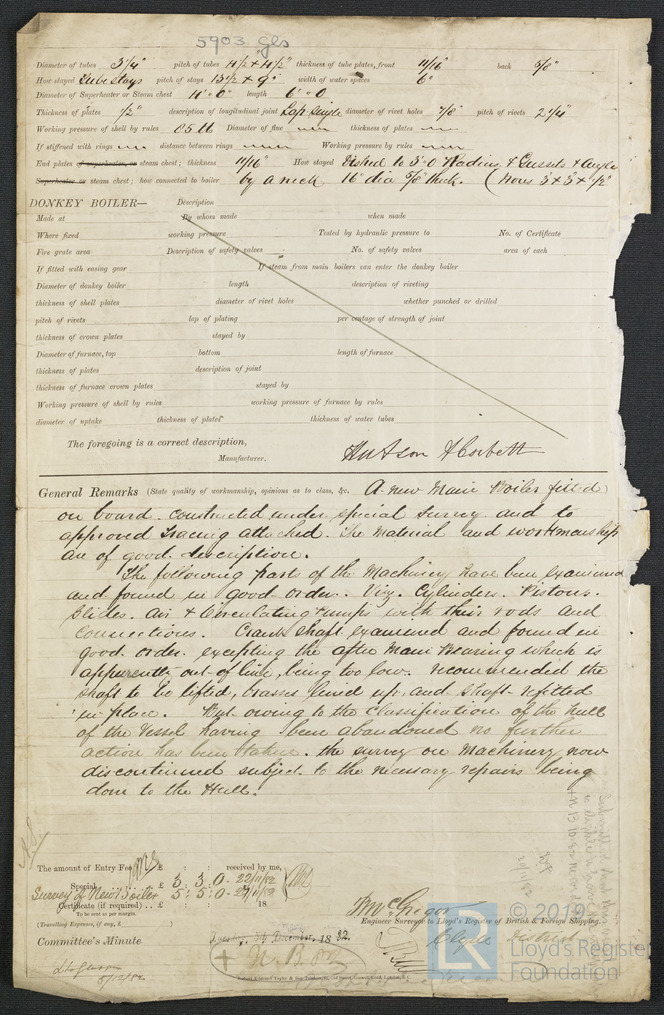 5903 gls
Diameter of tubes 3 1/4" pitch of tubes 4 1/2 x 4 1/2" thickness of tube plates, front 11/16" back 5/8"
How stayed Tube stays pitch of stays 13 1/2 x 9" width of water spaces 6"
Diameter of Superheater or Steam chest length 6'0
Thickness of plates 1/2" description of longitudinal joint Lap Single diameter of rivet holes 7/8" pitch of rivets 2 1/4"
Working pressure of shell by rules Diameter of flue thickness of plates
If stiffened with rings distance between rings Working pressure by rules
End plates of superheater, or steam chest; thickness 11/16" How stayed to 3'0 Radius & Gussets & Angle
Superheater or steam chest; how connected to boiler by a neck 16" dia 5/8" thick. (Irons 3 x 3 x 1/2"
DONKEY BOILER— Description
Made at By whom made when made
Where fixed working pressure Tested by hydraulic pressure to No. of Certificate
Fire grate area Description of safety valves No. of safety valves area of each
If fitted with easing gear If steam from main boilers can enter the donkey boiler
Diameter of donkey boiler length description of riveting
thickness of shell plates diameter of rivet holes whether punched or drilled
pitch of rivets lap of plating per centage of strength of joint
thickness of crown plates stayed by
Diameter of furnace, top bottom length of furnace
thickness of plates description of joint
thickness of furnace crown plates stayed by
Working pressure of shell by rules working pressure of furnace by rules
diameter of uptake thickness of plates thickness of water tubes
The foregoing is a correct description,
Hutson & Corbett
Manufacturer.
General Remarks (State quality of workmanship, opinions as to class, &c. A new Main Boiler fitted
on board. constructed under special survey and to
approved tracing attached. The Material and workmanship
are of good description.
The following parts of the Machinery have been examined
and found in good order. Viz. Cylinders. Pistons.
Slides. Air & Circulating Pumps with their rods and
connections. Crank Shaft examined and found in
good order. excepting the after Main Bearing which is
apparently out of line, being too low. recommended the
shaft to be lifted, brasses lined up, and shaft refitted
in place. But owing to the Classification of the hull
of the Vessel having been abandoned no further
action has been taken. the survey on Machinery now
discontinued subject to the necessary repairs being
done to the Hull.
The amount of Entry Fee £ : : received by me,
Special £ 3 : 3 : 0 . 22/11/82
Survey of New Boiler £ 5 : 5 : 0 .
Certificate (if required) .. £ : : 18
To be sent as per margin.
(Travelling Expenses, if any, £ )
McGregor
Engineer Surveyor to Lloyd's Register of British & Foreign Shipping.
Clyde District
Committee's Minute 5th December, 1882.
5/12/82
© 2019
Lloyd's Register
Foundation
LR